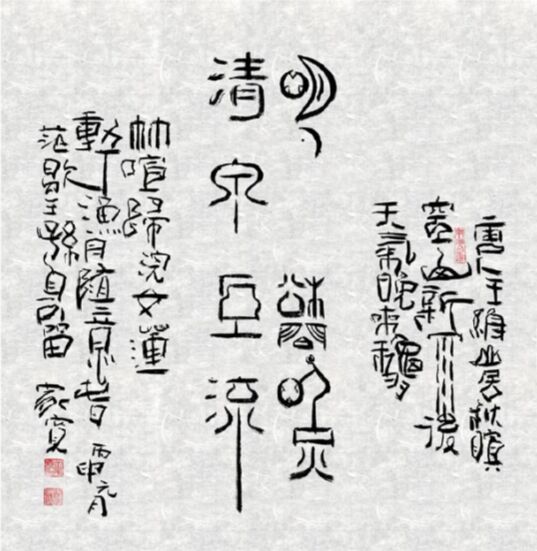 唐王維山居秋暝
空山新雨後
天氣晚來穐
明月松間照
清泉石上流
竹喧歸浣女蓮
動下漁舟隨意春
芳歇王孫自可留
丙申元月